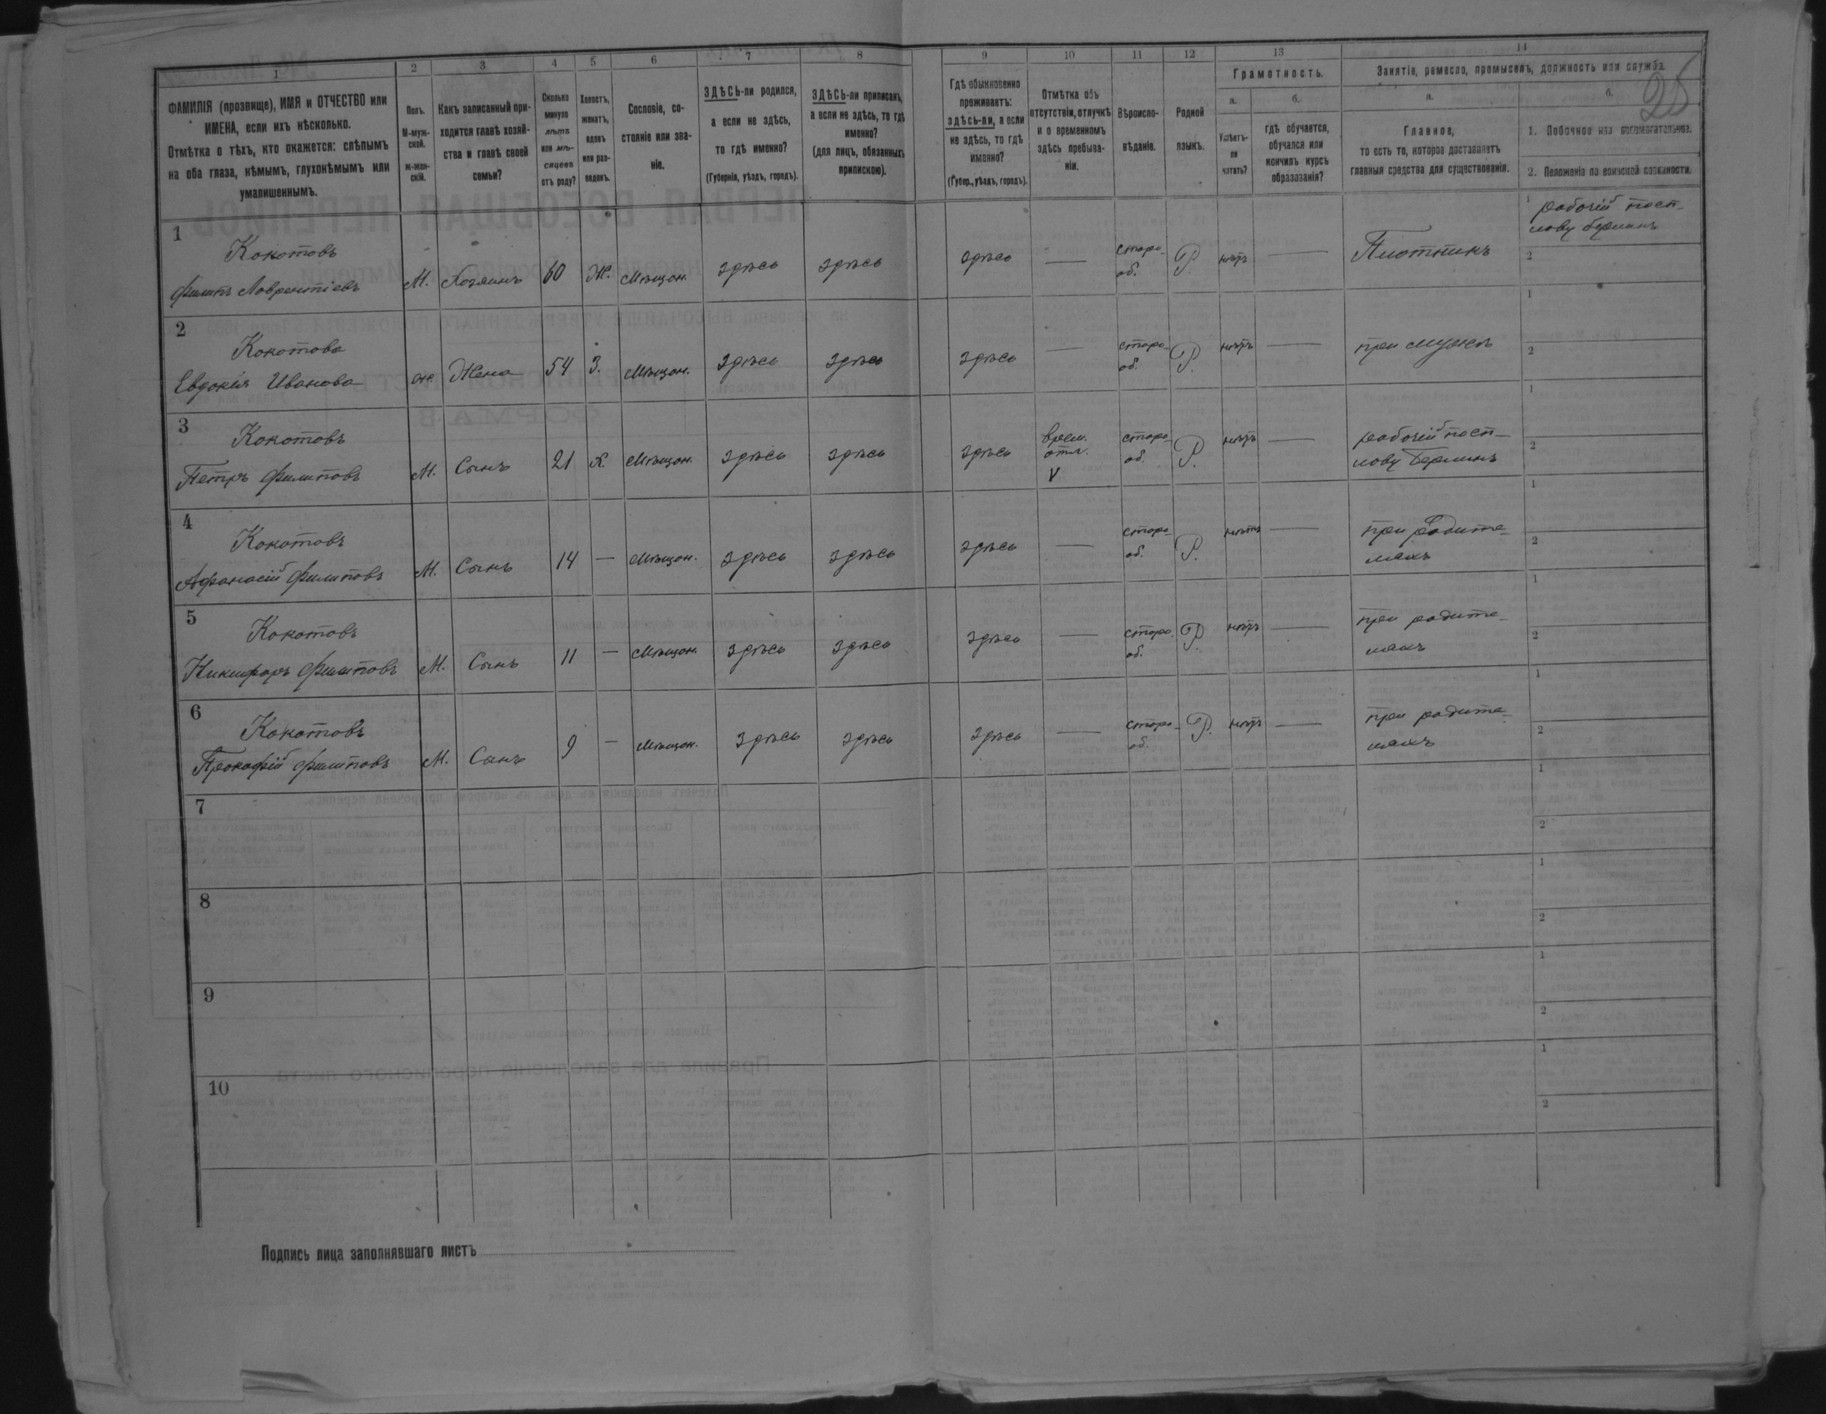 1 2 3 4 5 6 7 8 9 10 11 12 13 14
ФАМИЛІЯ (прозвище), ИМЯ и ОТЧЕСТВО или ИМЕНА, если ихъ нѣсколько.
Отмѣтка о тѣхъ, кто окажется: слѣпымъ на оба глаза, нѣмымъ, глухонѣмымъ или умалишеннымъ.
Полъ.
М-мужской.
ж-женскій.
Какъ записанный приходится главѣ хозяйства и главѣ своей семьи?
Сколько минуло лѣтъ или мѣсяцевъ отъ роду?
Холостъ, женатъ, вдовъ или разведенъ.
Сословіе, состояніе или званіе.
ЗДѢСЬ-ли родился, а если не здѣсь, то гдѣ именно?
(Губернія, уѣздъ, городъ).
ЗДѢСЬ-ли приписанъ, а если не здѣсь, то гдѣ именно?
(для лицъ, обязанныхъ припискою).
Гдѣ обыкновенно проживаетъ: здѣсь-ли, а если не здѣсь, то гдѣ именно?
(Губер., уѣздъ, городъ).
Отмѣтка объ отсутствіи, отлучкѣ и о временномъ здѣсь пребываніи.
Вѣроисповѣданіе.
Родной языкъ.
Грамотность.
а.
Умѣетъ-ли читать?
б.
гдѣ обучается, обучался или кончилъ курсъ образованія?
Занятіе, ремесло, промыселъ, должность или служба.
а.
Главное,
то есть то, которое доставляетъ главныя средства для существованія.
б.
1. Побочное или вспомогательное.
2. Положеніе по воинской повинности.
25
1 Кокотовъ Филипъ Лаврентіевъ М. Хозяинъ 60 Ж. Мѣщан. здѣсь здѣсь здѣсь — старооб. Р. нѣтъ — Плотникъ 1 рабочій
2
2 Кокотова Евдокія Иванова ж. Жена 54 З. Мѣщан. здѣсь здѣсь здѣсь — старооб. Р. нѣтъ — при мужѣ 1
2
3 Кокотовъ Петръ Филиповъ М. Сынъ 21 Х. Мѣщан. здѣсь здѣсь здѣсь врем. отл. V старооб. Р. нѣтъ — рабочій 1
2
4 Кокотовъ Афанасій Филиповъ М. Сынъ 14 — Мѣщан. здѣсь здѣсь здѣсь — старооб. Р. нѣтъ — при родителяхъ 1
2
5 Кокотовъ Никифоръ Филиповъ М. Сынъ 11 — Мѣщан. здѣсь здѣсь здѣсь — старооб. Р. нѣтъ — при родителяхъ 1
2
6 Кокотовъ Прокофій Филиповъ М. Сынъ 9 — Мѣщан. здѣсь здѣсь здѣсь — старооб. Р. нѣтъ — при родителяхъ 1
2
7 1
2
8 1
2
9 1
2
10 1
2
Подпись лица заполнявшаго листъ